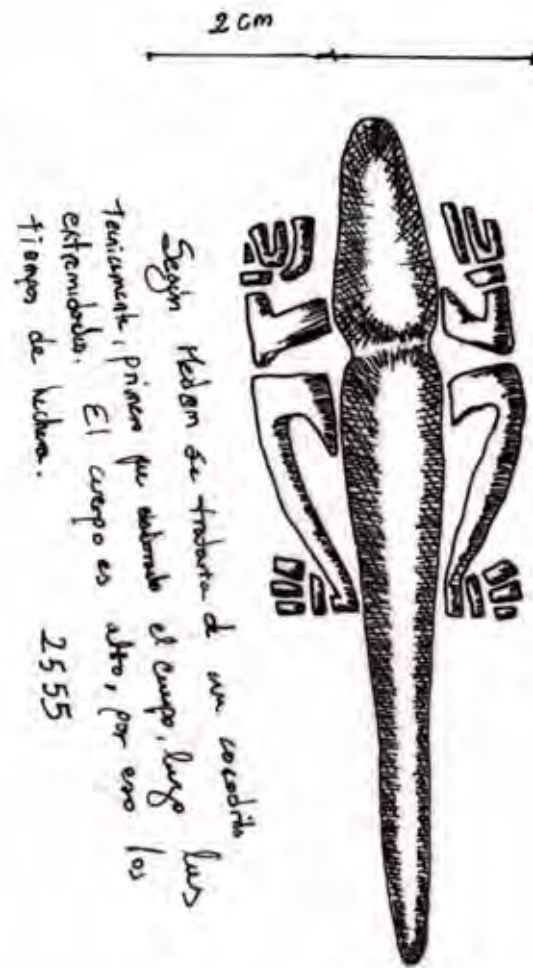 2 cm
Según Medem se trataría de un cocodrilo.
Técnicamente, primero fue elaborado el cuerpo, luego las
extremidades. El cuerpo es alto, por eso los
tiempos de hechura.
2555